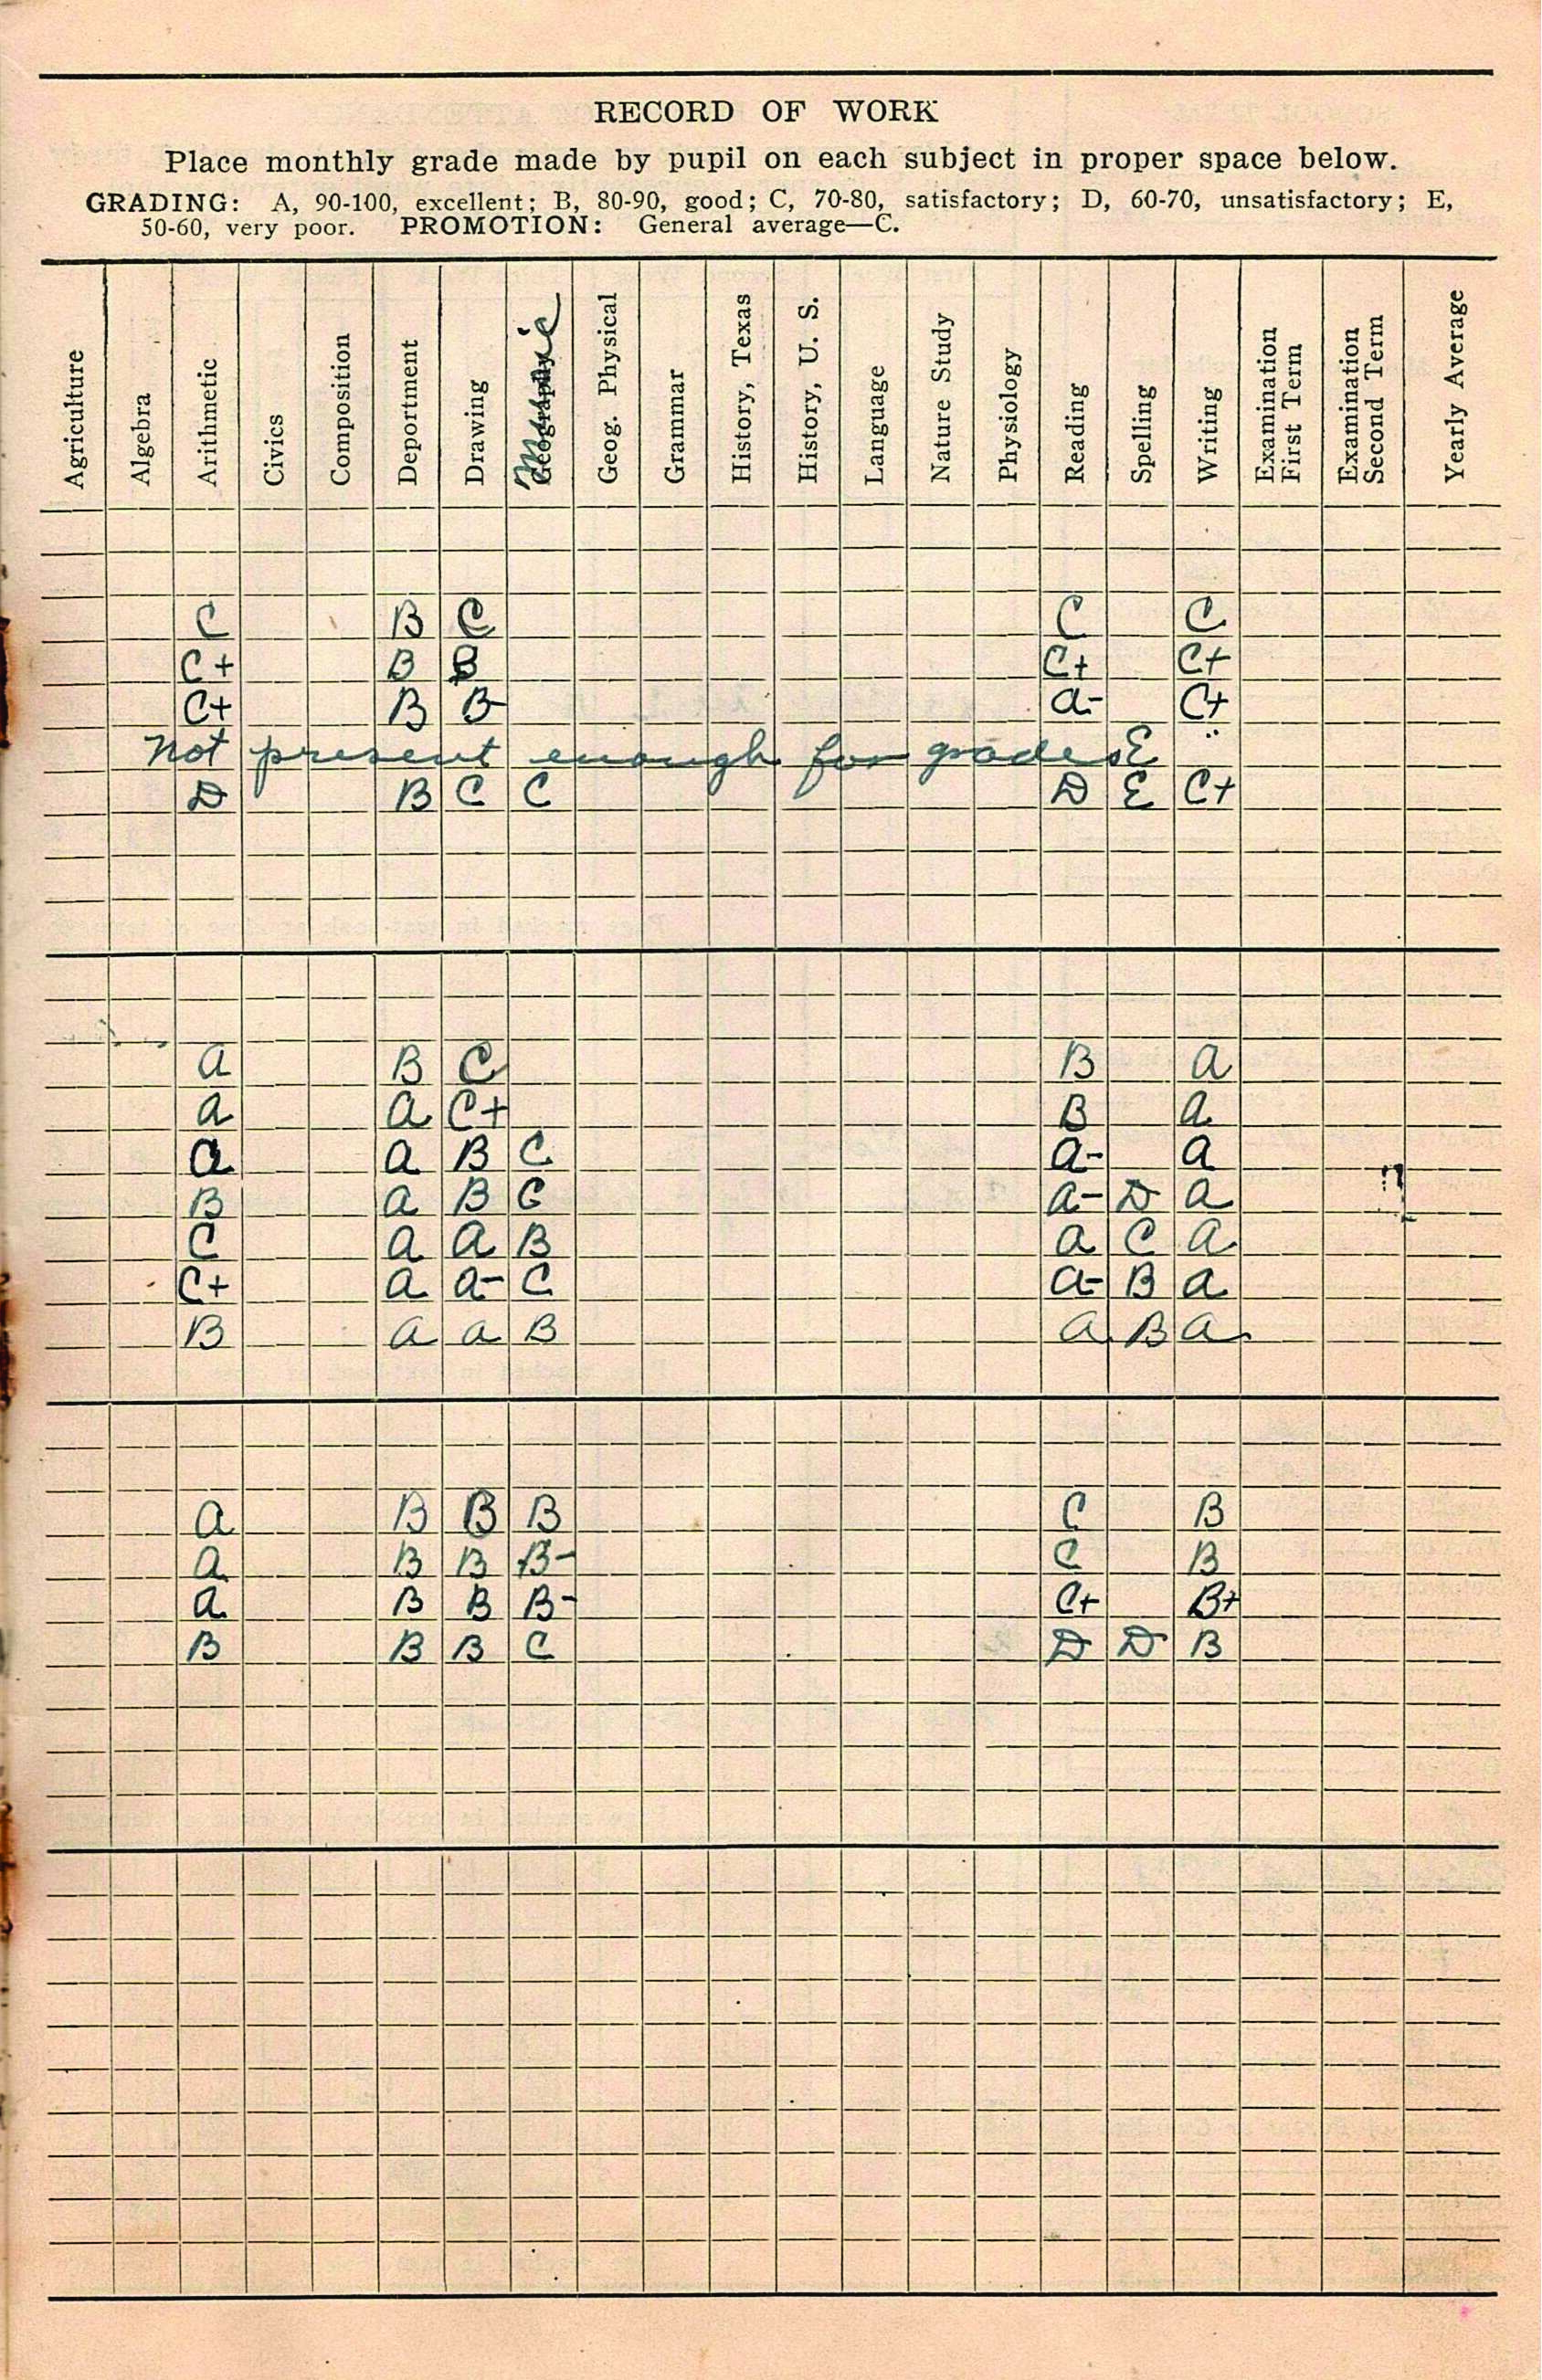 RECORD OF WORK
Place monthly grade made by pupil on each subject in proper space below.
GRADING: A, 90-100, excellent; B, 80-90, good; C, 70-80, satisfactory; D, 60-70, unsatisfactory; E,
50-60, very poor. PROMOTION: General average—C.
Agriculture Algebra Arithmetic Civics Composition Deportment Drawing Geography Music Geog. Physical Grammar History, Texas History, U. S. Language Nature Study Physiology Reading Spelling Writing Examination First Term Examination Second Term Yearly Average
C B C C C
C+ B B C+ C+
C+ B B A- C+
Not present enough for grades E
D B C C D E C+
A B C B A
A A C+ B A
A A B C A- A
B A B C A- D A
C A A B A C A
C+ A A- C A- B A
B A A B A B A
A B B B C B
A B B B- C B
A B B B- C+ B+
B B B C D D B